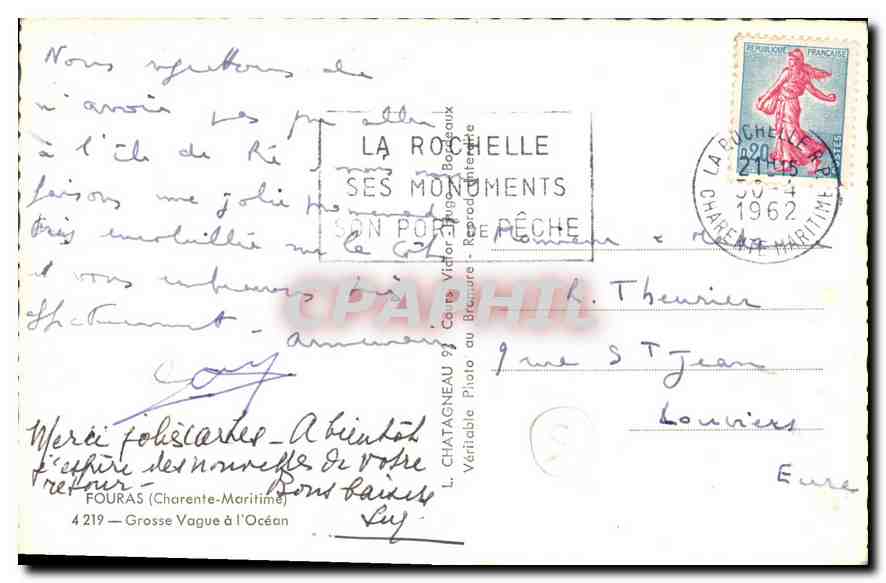 Nous regrettons de
n'avoir pas pu aller
à l'île de Ré nous
faisons une jolie promenade
très sur la Côte
et vous embrassons très
affectueusement -
Merci jolies cartes - A bientôt
j'espère des nouvelles de votre
retour -
Bons baisers
FOURAS (Charente-Maritime)
4 219 — Grosse Vague à l'Océan
L. CHATAGNEAU 92 Cours Victor Hugo Bordeaux
Véritable Photo au Bromure - Reprod. Interdite
LA ROCHELLE
SES MONUMENTS
SON PORT DE PÊCHE
REPUBLIQUE FRANÇAISE
0,20
POSTES
LA ROCHELLE R.P.
21H15
30-4
1962
CHARENTE MARITIME
CPAPHIL
Monsieur &
R. Theurier
9 rue St Jean
Louviers
Eure